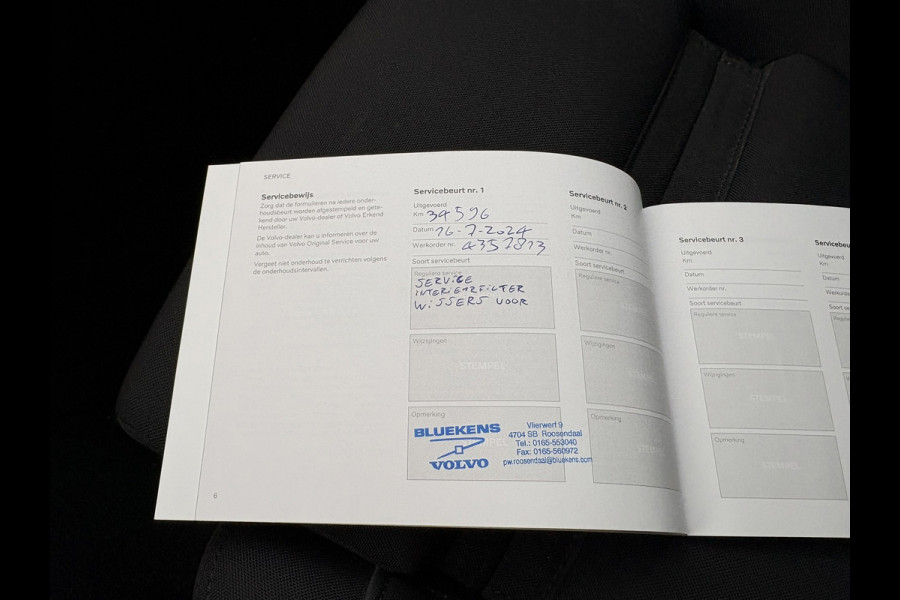 SERVICE
Servicebewijs
Zorg dat de formulieren na iedere onder-
houdsbeurt worden afgestempeld en gete-
kend door uw Volvo-dealer of Volvo Erkend
Hersteller.
De Volvo-dealer kan u informeren over de
inhoud van Volvo Original Service voor uw
auto.
Vergeet niet onderhoud te verrichten volgens
de onderhoudsintervallen.
6
Servicebeurt nr. 1
Uitgevoerd
Km 34596
Datum 16-7-2024
Werkorder nr. 4352813
Soort servicebeurt
Reguliere service
SERVICE
INTERIEURFILTER
WISSERS VOOR
Wijzigingen
STEMPEL
Opmerking
BLUEKENS
VOLVO
Vlierwerf 9
4704 SB Roosendaal
Tel.: 0165-553040
Fax: 0165-560972
pw.roosendaal@bluekens.com
Servicebeurt nr. 2
Uitgevoerd
Km
Datum
Werkorder nr.
Soort servicebeurt
Reguliere service
Wijzigingen
Opmerking
Servicebeurt nr. 3
Uitgevoerd
Km
Datum
Werkorder nr.
Soort servicebeurt
Reguliere service
STEMPEL
Wijzigingen
STEMPEL
Opmerking
STEMPEL
Servicebeu
Uitgevoerd
Km
Datum
Werkorde
Soort se